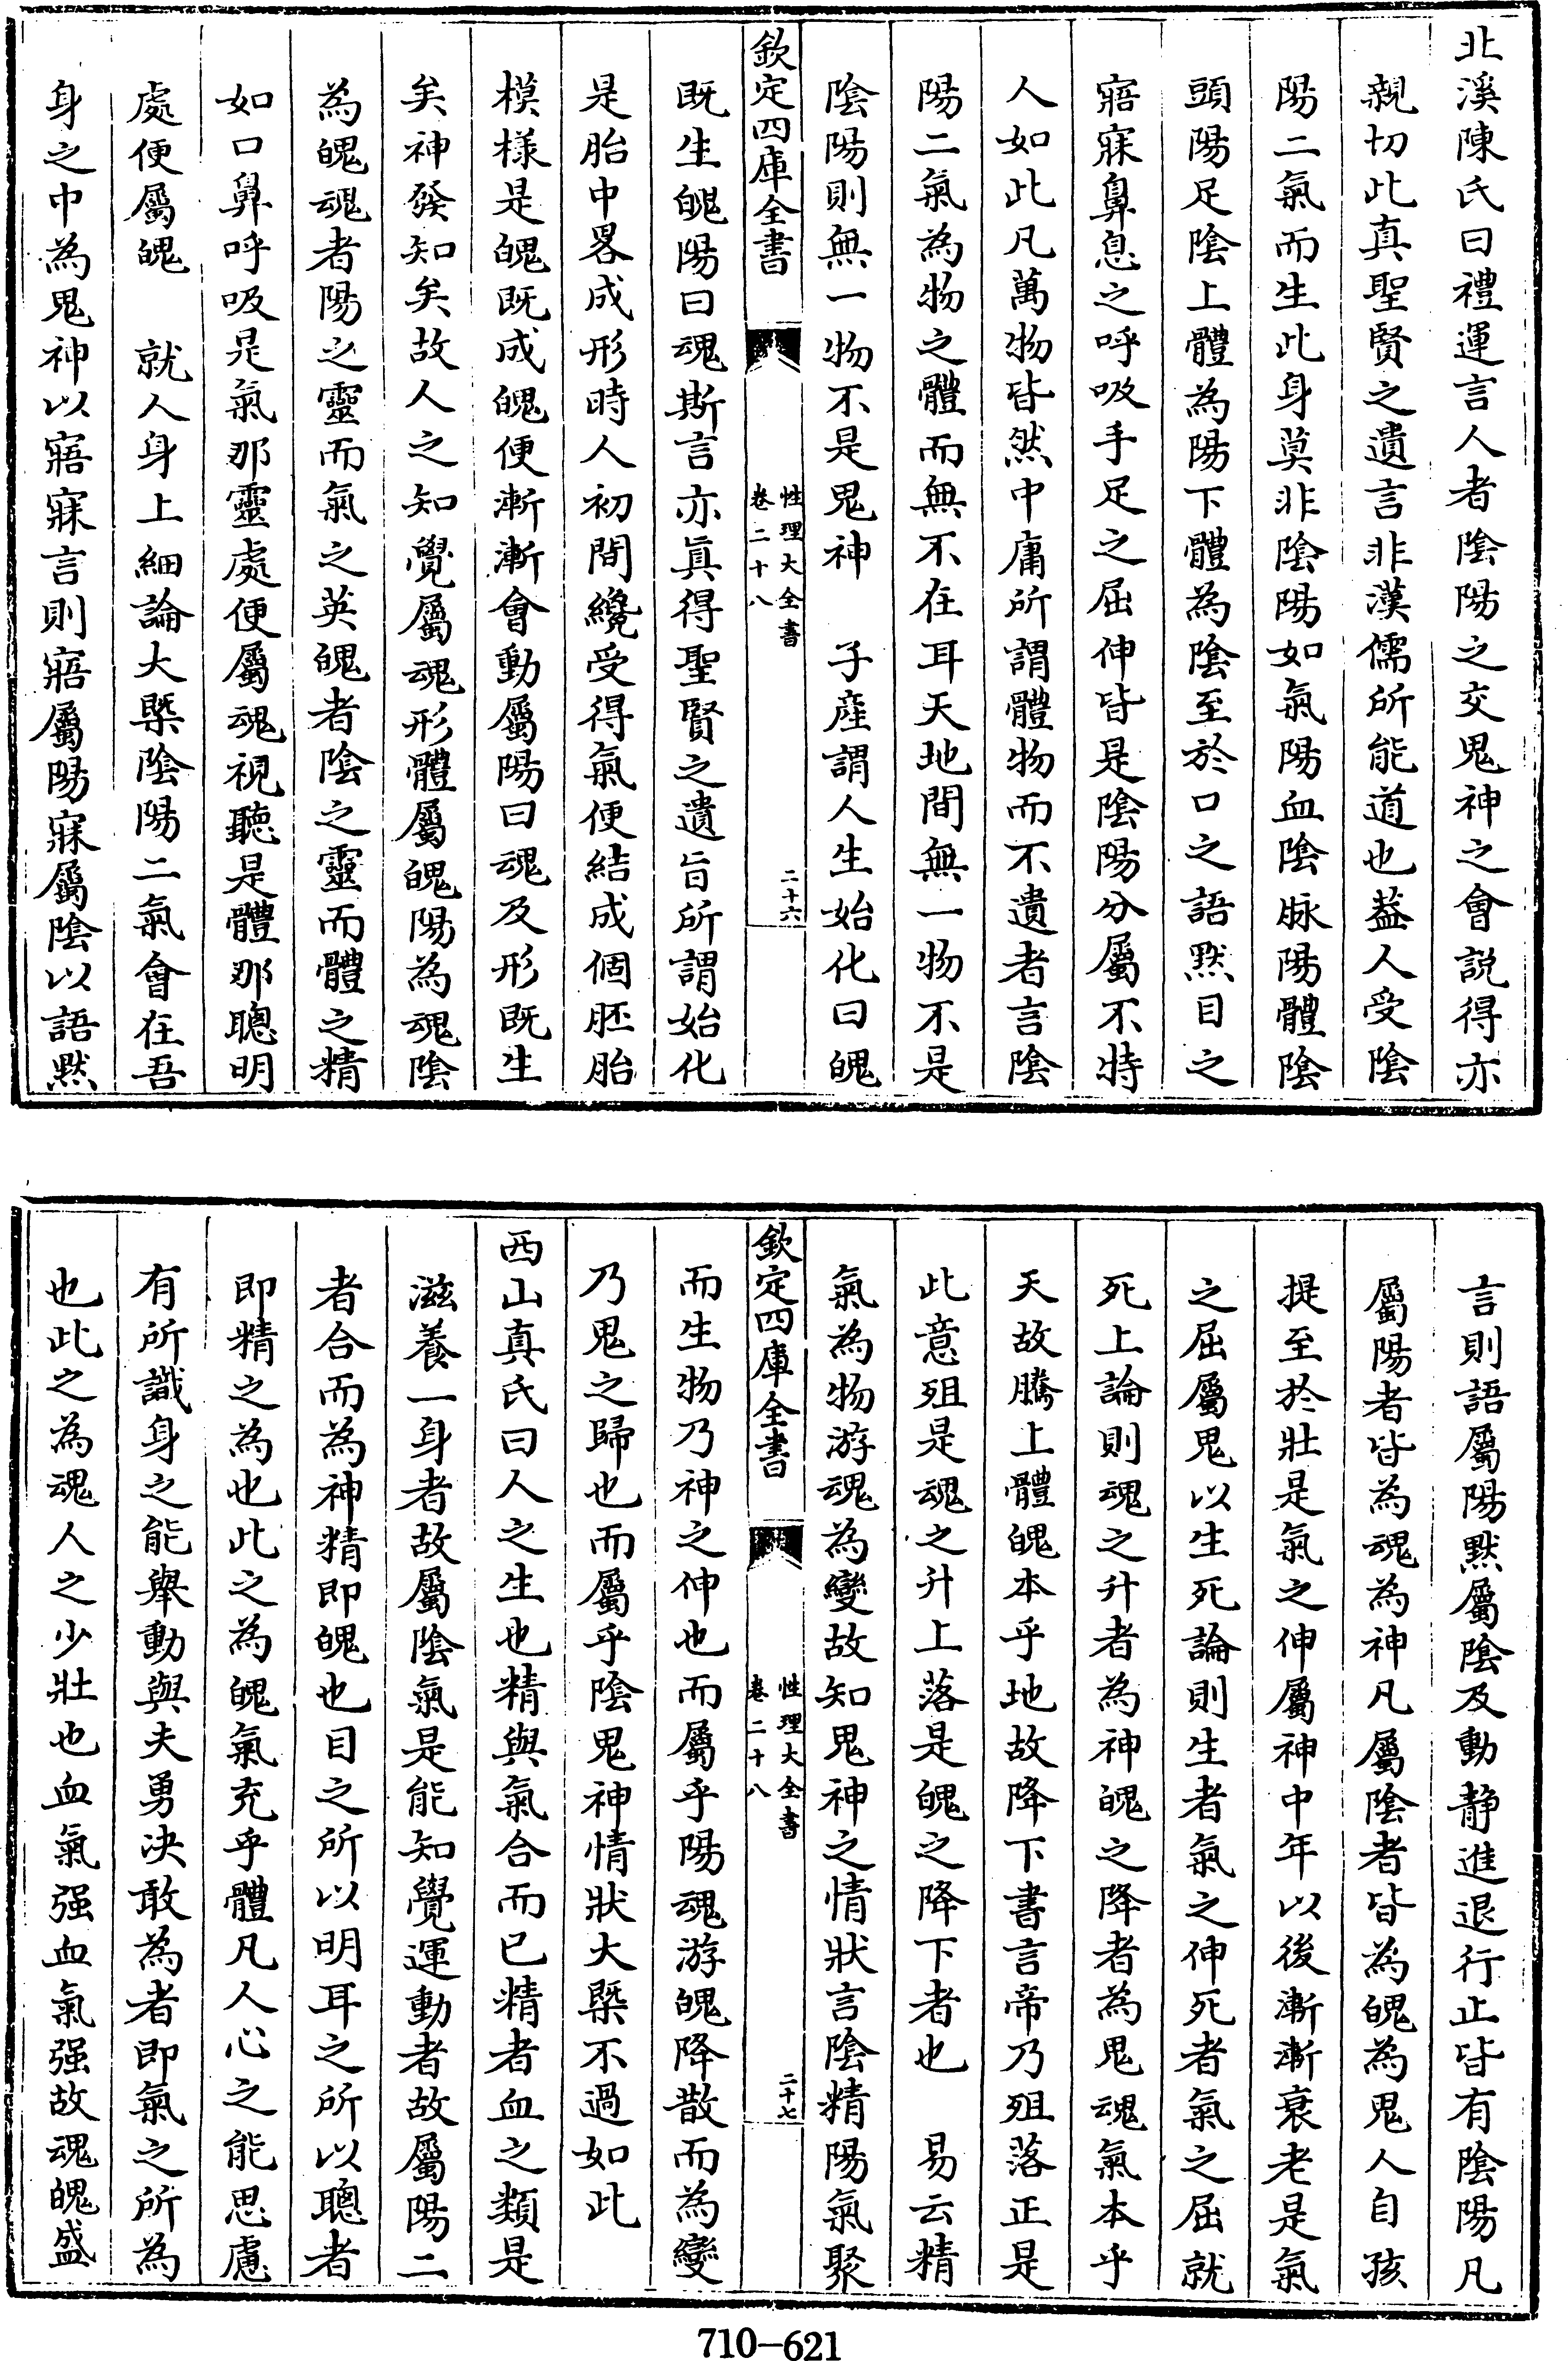 北溪陳氏曰禮運言人者陰陽之交鬼神之會説得亦
親切此真聖賢之遺言非漢儒所能道也葢人受陰
陽二氣而生此身莫非陰陽如氣陽血陰脉陽體陰
頭陽足陰上體為陽下體為陰至於口之語黙目之
寤寐鼻息之呼吸手足之屈伸皆是陰陽分屬不特
人如此凡萬物皆然中庸所謂體物而不遺者言陰
陽二氣為物之體而無不在耳天地間無一物不是
陰陽則無一物不是鬼神　子産謂人生始化曰魄
欽定四庫全書
性理大全書
卷二十八
二十六
既生魄陽曰魂斯言亦真得聖賢之遺旨所謂始化
是胎中畧成形時人初間纔受得氣便結成個胚胎
模様是魄既成魄便漸漸會動屬陽曰魂及形既生
矣神發知矣故人之知覺屬魂形體屬魄陽為魂陰
為魄魂者陽之靈而氣之英魄者陰之靈而體之精
如口鼻呼吸是氣那靈處便屬魂視聽是體那聰明
處便屬魄　就人身上細論大槩陰陽二氣會在吾
身之中為鬼神以寤寐言則寤屬陽寐屬陰以語黙
言則語屬陽黙屬陰及動静進退行止皆有陰陽凡
屬陽者皆為魂為神凡屬陰者皆為魄為鬼人自孩
提至於壯是氣之伸屬神中年以後漸漸衰老是氣
之屈屬鬼以生死論則生者氣之伸死者氣之屈就
死上論則魂之升者為神魄之降者為鬼魂氣本乎
天故騰上體魄本乎地故降下書言帝乃殂落正是
此意殂是魂之升上落是魄之降下者也　易云精
氣為物游魂為變故知鬼神之情狀言陰精陽氣聚
欽定四庫全書
性理大全書
卷二十八
二十七
而生物乃神之伸也而屬乎陽魂游魄降散而為變
乃鬼之歸也而屬乎陰鬼神情狀大槩不過如此
西山真氏曰人之生也精與氣合而已精者血之類是
滋養一身者故屬陰氣是能知覺運動者故屬陽二
者合而為神精即魄也目之所以明耳之所以聰者
即精之為也此之為魄氣充乎體凡人心之能思慮
有所識身之能舉動與夫勇决敢為者即氣之所為
也此之為魂人之少壯也血氣强血氣强故魂魄盛
710-621